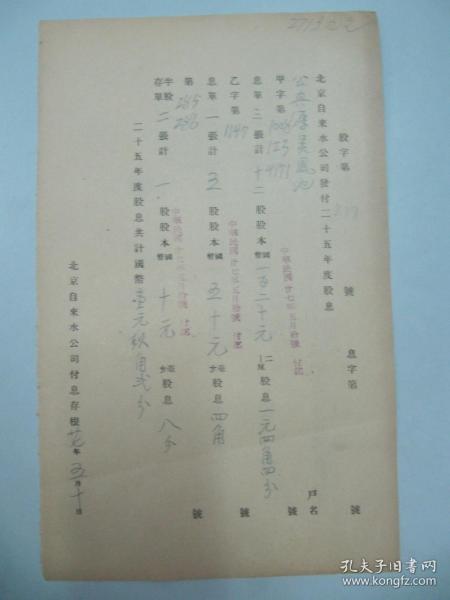 股字第 號 息字第 號
北京自來水公司發付二十五年度股息
戶名
甲字第 號
息單三張計十二股股本國幣一百二十元 股息一元四角四分
中華民國廿七年五月拾號付訖
乙字第 1147 號
息單一張計五股股本國幣五十元 股息四角
中華民國廿七年五月拾號付訖
第 285 286 號
半股存單二張計一股股本國幣十元 股息八分
中華民國廿七年五月拾號付訖
二十五年度股息共計國幣壹元玖角貳分
北京自來水公司付息存根 廿七年五月十日
孔夫子旧书网
www.kongfz.com